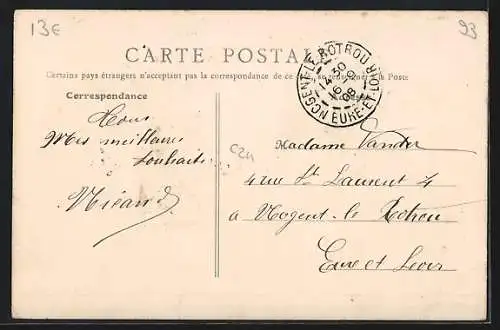 13€
93
CARTE POSTALE
Certains pays étrangers n'acceptent pas la correspondance de ce côté, se renseigner à la Poste
NOGENT-LE-ROTROU EURE-ET-LOIR
14 50
16
08
Correspondance
Mes meilleurs
souhaits
C24
Madame
4 rue St Laurent 4
a Nogent-le Rotrou
Eure et Loir